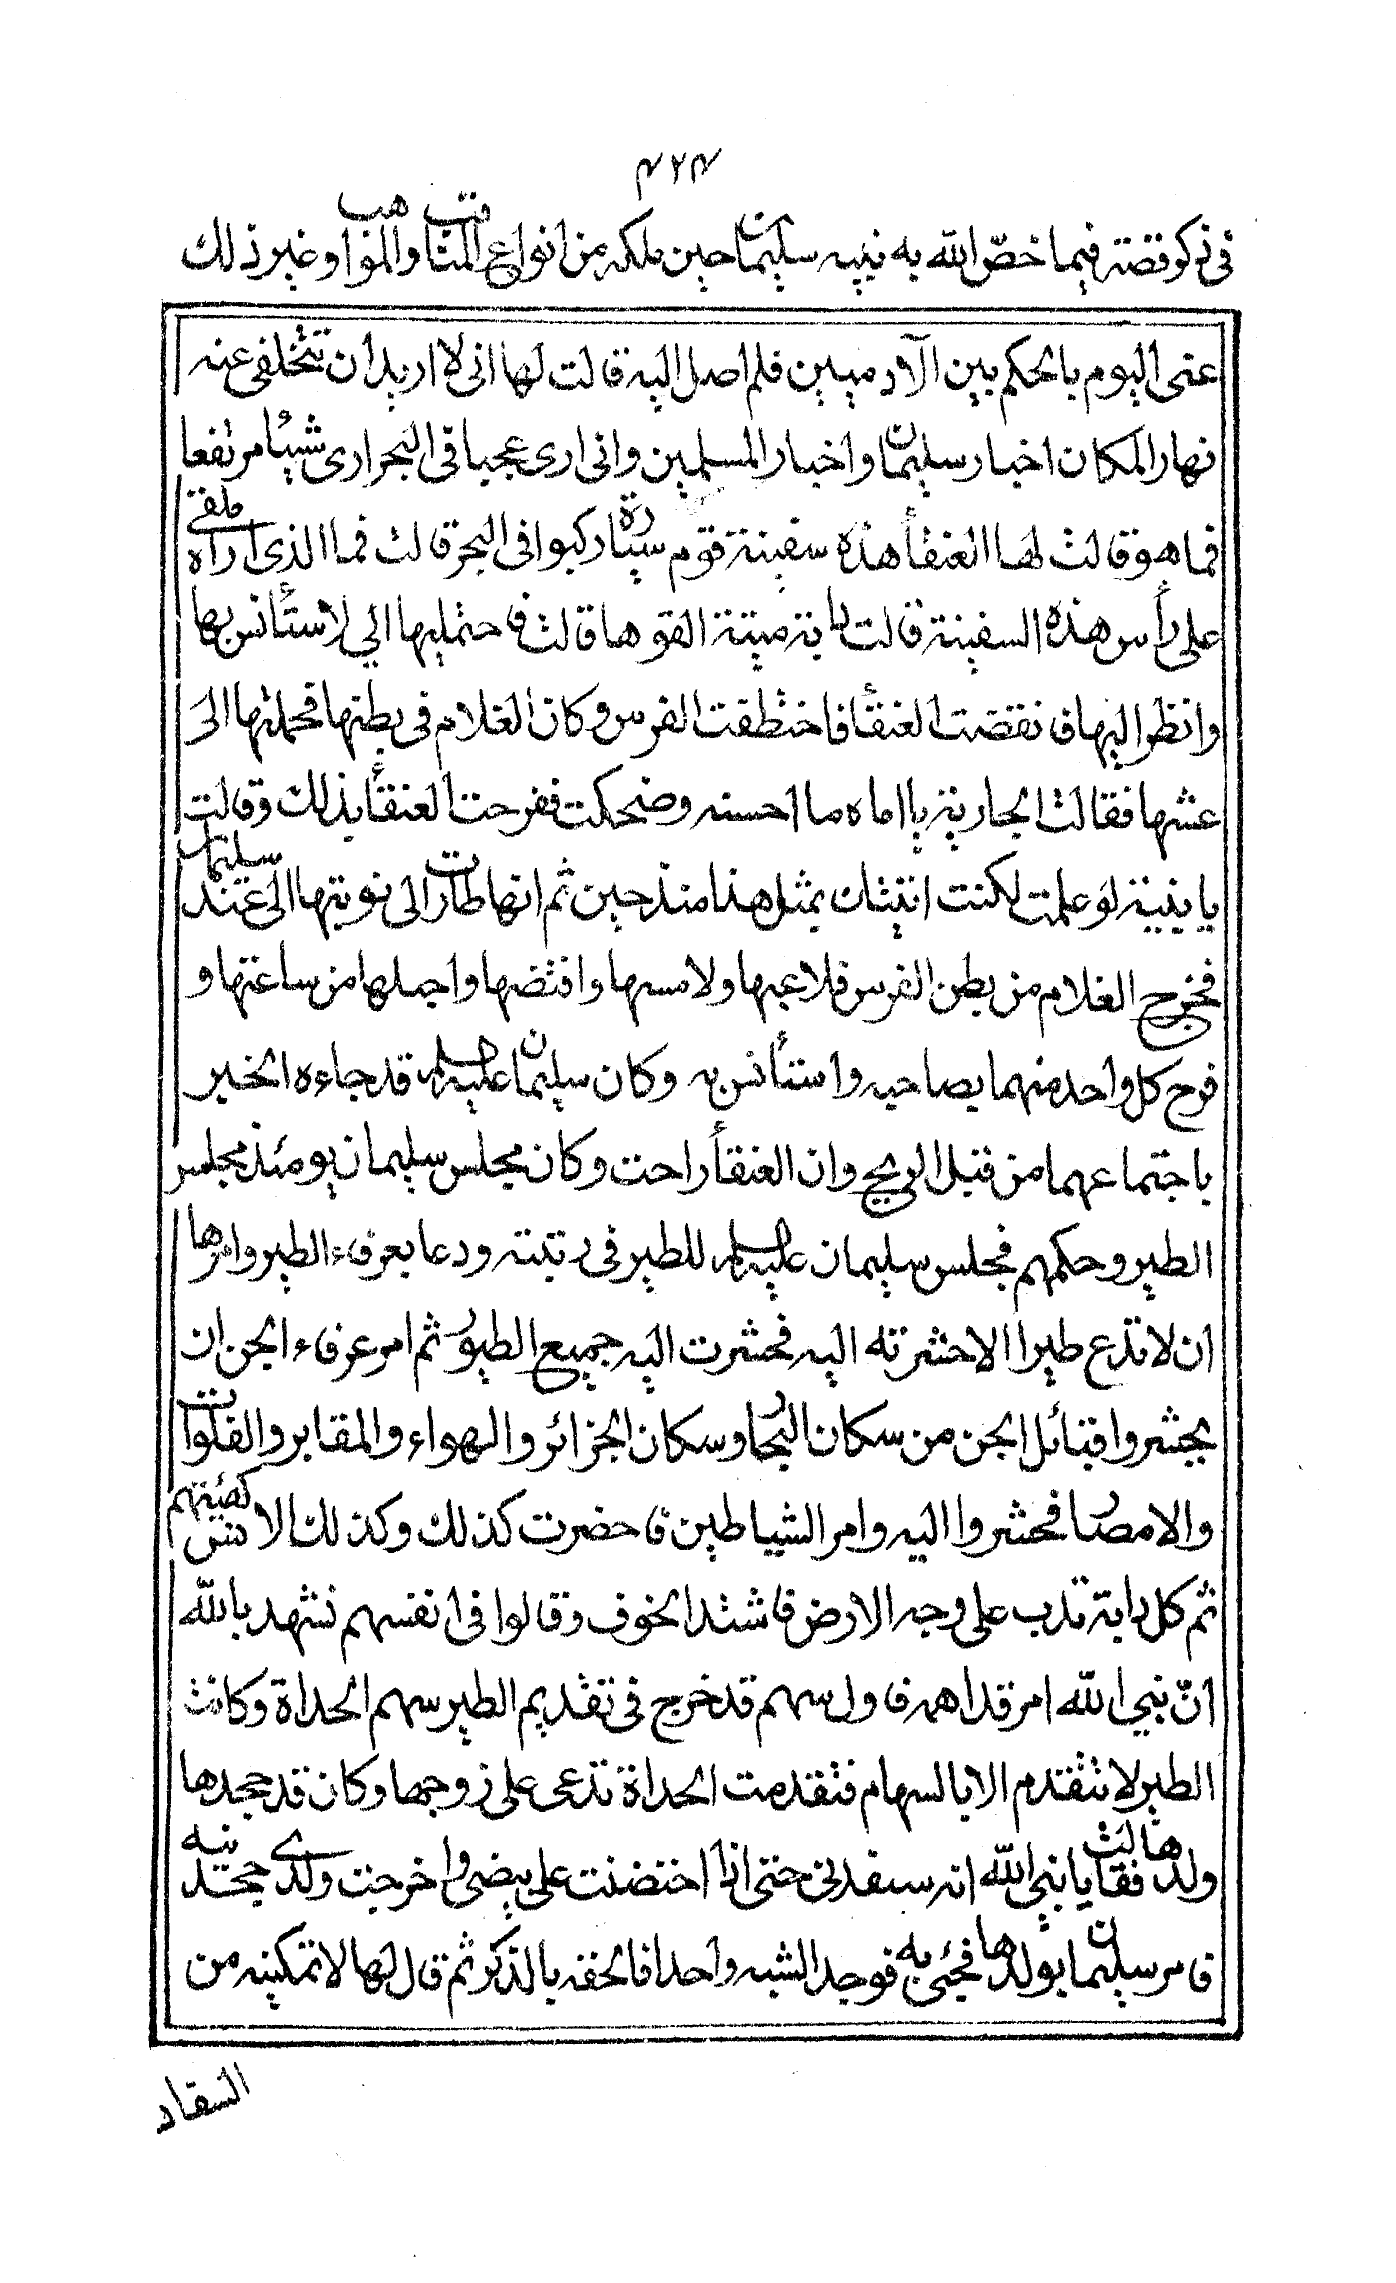 ٤٢٤
فى ذكر قصة فيما خصّ الله به نبيه سليمان حين ملكه من انواع المناقب والمواهب وغير ذلك
عنى اليوم بالحكم بين الآدميين فلم اصل اليه قالت لها انى لا اريد ان تتخلفى عنه
نهار المكان اخبار سليمان واخبار المسلمين وانى ارى عجبا فى البحر ارى شيئا مرتفعا
فما هو قالت لها العنقأ هذه سفينة قوم سيارة ركبوا فى البحر قالت فما الذى اراه ملقى
على رأس هذه السفينة قالت دابة ميتة القوها قالت فاحتمليها الي لاستأنس بها
وانظر اليها فانقضت العنقأ فاختطفت الفرس وكان الغلام فى بطنها فحملتها الى
عشها فقالت الجارية يا اماه ما احسنه وضحكت ففرحت العنقأ بذلك وقالت
يا بنية لو علمت لكنت اتيتك بمثل هذا منذ حين ثم انها طارت الى نوبتها الى عند سليمان
فخرج الغلام من بطن الفرس فلاعبها ولامسها وافتضها واحبلها من ساعتها و
فرح كل واحد منهما بصاحبه واستأنس به وكان سليمان عليه السلم قد جاءه الخبر
باجتماعهما من قبل الريح وان العنقأ راحت وكان مجلس سليمان يومئذ مجلس
الطير وحكمهم فجلس سليمان عليه السلم للطير فى رتبته ودعا بعرفاء الطير وامرها
ان لا تدع طيرا الا حشرته اليه فحشرت اليه جميع الطيور ثم امر عرفاء الجن ان
يحشروا قبائل الجن من سكان البحار وسكان الجزائر والهواء والمقابر والفلوات
والامصار فحشروا اليه وامر الشياطين فاحضرت كذلك وكذلك الانس كهيئتهم
ثم كل دابة تدب على وجه الارض فاشتد الخوف وقالوا فى انفسهم نشهد بالله
انّ نبي الله امر قد اهمه فاول سهم قد خرج فى تقديم الطير سهم الحداة وكانت
الطير لا تتقدم الا بالسهام فتقدمت الحداة تدعى على زوجها وكان قد جحدها
ولدها فقالت يا نبي الله انه سفدنى حتى اذا احتضنت على بيضى واخرجت ولدى جحدنيه
فامر سليمان بولدها فجئى به فوجد الشبه واحدا فالحقه بالذكر ثم قال لها لا تمكنيه من
السفاد